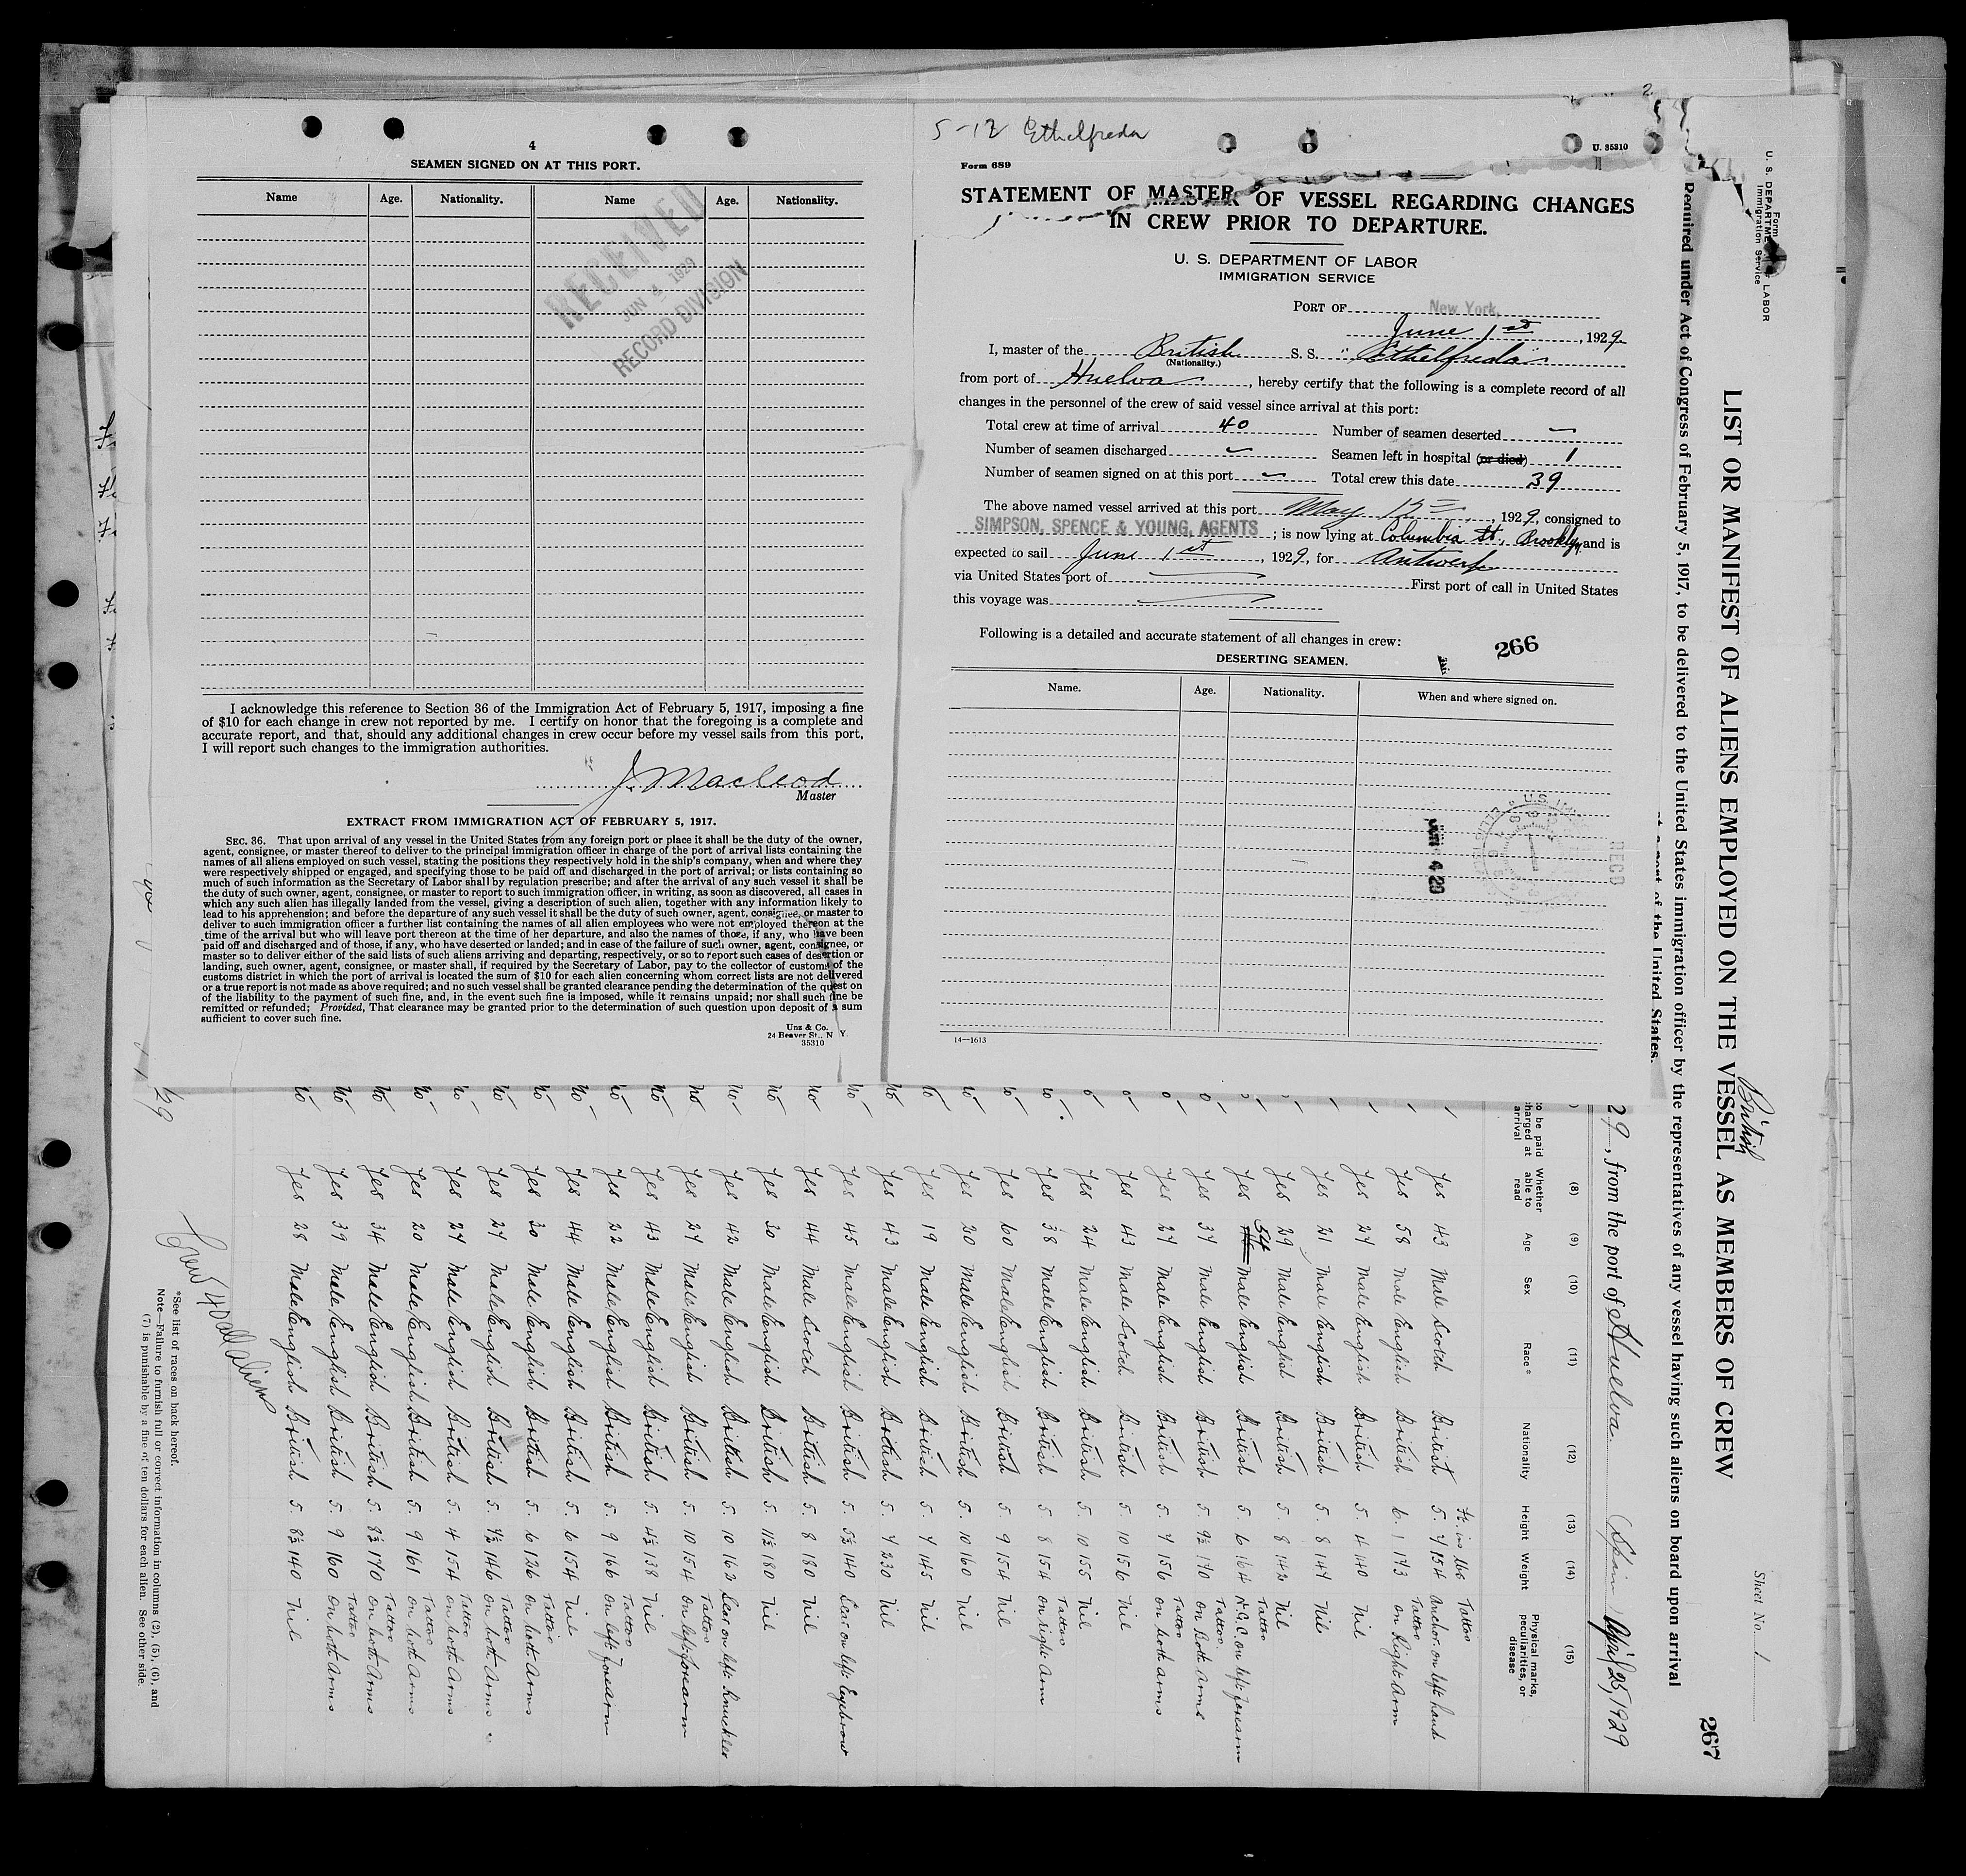 4
SEAMEN SIGNED ON AT THIS PORT.
Name Age. Nationality. Name Age. Nationality.
RECEIVED
JUN 4 1929
RECORD DIVISION
I acknowledge this reference to Section 36 of the Immigration Act of February 5, 1917, imposing a fine
of $10 for each change in crew not reported by me. I certify on honor that the foregoing is a complete and
accurate report, and that, should any additional changes in crew occur before my vessel sails from this port,
I will report such changes to the immigration authorities.
J. Macleod
Master
EXTRACT FROM IMMIGRATION ACT OF FEBRUARY 5, 1917.
SEC. 36. That upon arrival of any vessel in the United States from any foreign port or place it shall be the duty of the owner,
agent, consignee, or master thereof to deliver to the principal immigration officer in charge of the port of arrival lists containing the
names of all aliens employed on such vessel, stating the positions they respectively hold in the ship's company, when and where they
were respectively shipped or engaged, and specifying those to be paid off and discharged in the port of arrival; or lists containing so
much of such information as the Secretary of Labor shall by regulation prescribe; and after the arrival of any such vessel it shall be
the duty of such owner, agent, consignee, or master to report to such immigration officer, in writing, as soon as discovered, all cases in
which any such alien has illegally landed from the vessel, giving a description of such alien, together with any information likely to
lead to his apprehension; and before the departure of any such vessel it shall be the duty of such owner, agent, consignee, or master to
deliver to such immigration officer a further list containing the names of all alien employees who were not employed thereon at the
time of the arrival but who will leave port thereon at the time of her departure, and also the names of those, if any, who have been
paid off and discharged and of those, if any, who have deserted or landed; and in case of the failure of such owner, agent, consignee, or
master so to deliver either of the said lists of such aliens arriving and departing, respectively, or so to report such cases of desertion or
landing, such owner, agent, consignee, or master shall, if required by the Secretary of Labor, pay to the collector of customs of the
customs district in which the port of arrival is located the sum of $10 for each alien concerning whom correct lists are not delivered
or a true report is not made as above required; and no such vessel shall be granted clearance pending the determination of the question
of the liability to the payment of such fine, and, in the event such fine is imposed, while it remains unpaid; nor shall such fine be
remitted or refunded; Provided, That clearance may be granted prior to the determination of such question upon deposit of a sum
sufficient to cover such fine.
Unz & Co.
24 Beaver St., N. Y.
35310
5-12 Ethelfreda
Form 689
U. 35310
STATEMENT OF MASTER OF VESSEL REGARDING CHANGES
IN CREW PRIOR TO DEPARTURE.
U. S. DEPARTMENT OF LABOR
IMMIGRATION SERVICE
PORT OF New York,
June 1st, 1929
I, master of the British S. S. "Ethelfreda"
(Nationality.)
from port of Huelva, hereby certify that the following is a complete record of all
changes in the personnel of the crew of said vessel since arrival at this port:
Total crew at time of arrival 40 Number of seamen deserted —
Number of seamen discharged — Seamen left in hospital (or died) 1
Number of seamen signed on at this port — Total crew this date 39
The above named vessel arrived at this port May 12, 1929, consigned to
SIMPSON, SPENCE & YOUNG, AGENTS; is now lying at Columbia St., Brooklyn and is
expected to sail June 1st, 1929, for Antwerp
via United States port of — First port of call in United States
this voyage was —
Following is a detailed and accurate statement of all changes in crew:
266
DESERTING SEAMEN.
Name. Age. Nationality. When and where signed on.
JUN 4 29
RECD
14—1613
U. S. DEPARTMENT OF LABOR
Immigration Service
Sheet No. 1
British
LIST OR MANIFEST OF ALIENS EMPLOYED ON THE VESSEL AS MEMBERS OF CREW
267
Required under Act of Congress of February 5, 1917, to be delivered to the United States immigration officer by the representatives of any vessel having such aliens on board upon arrival
at a port of the United States.
29, from the port of Huelva. Spain April 25, 1929
(8) (9) (10) (11) (12) (13) (14) (15)
to be paid
charged at
arrival
Whether able to read Age Sex Race* Nationality Height Weight Physical marks, peculiarities, or disease
Ft. ins lbs
Yes 43 Male Scotch British 5. 7 154 Tattoo Anchor on left hand
Yes 58 Male English British 6. 1 173 Tattoo on Right Arm
Yes 27 Male English British 5. 4 140 Nil
Yes 21 Male English British 5. 8 147 Nil
Yes 29 Male English British 5. 8 142 Nil
Yes 54 Male English British 5. 6 164 Tattoo N.C. on left forearm
Yes 37 Male English British 5. 9½ 170 Tattoo on Both Arms
Yes 27 Male English British 5. 7 156 Tattoo on both arms
Yes 43 Male Scotch British 5. 10 156 Nil
Yes 24 Male English British 5. 10 155 Nil
Yes 38 Male English British 5. 8 154 Tattoo on right Arm
Yes 60 Male English British 5. 9 154 Nil
No Yes 20 Male English British 5. 10 160 Nil
No Yes 19 Male English British 5. 7 145 Nil
No Yes 43 Male English British 5. 7 230 Nil
No Yes 45 Male English British 5. 5½ 140 Scar on left Eyebrow
No Yes 44 Male Scotch British 5. 8 180 Nil
No Yes 30 Male English British 5. 11½ 180 Nil
No Yes 42 Male English British 5. 10 162 Scar on left Knuckles
No Yes 27 Male English British 5. 10 154 Tattoo on left forearm
No Yes 43 Male English British 5. 4½ 138 Nil
No Yes 22 Male English British 5. 9 166 Tattoo on left Forearm
No Yes 44 Male English British 5. 6 154 Nil
No Yes 30 Male English British 5. 6 126 Tattoo on both Arms
No Yes 27 Male English British 5. 7½ 146 Tattoo on both Arms
No Yes 27 Male English British 5. 4 154 Tattoo on both Arms
No Yes 20 Male English British 5. 9 161 Tattoo on both Arms
No Yes 34 Male English British 5. 8½ 170 Tattoo on both Arms
No Yes 39 Male English British 5. 9 160 Tattoo on both Arms
No Yes 28 Male English British 5. 8½ 140 Nil
Crew 40 all aliens
*See list of races on back hereof.
Note—Failure to furnish full or correct information in columns (2), (5), (6), and
(7) is punishable by a fine of ten dollars for each alien. See other side.